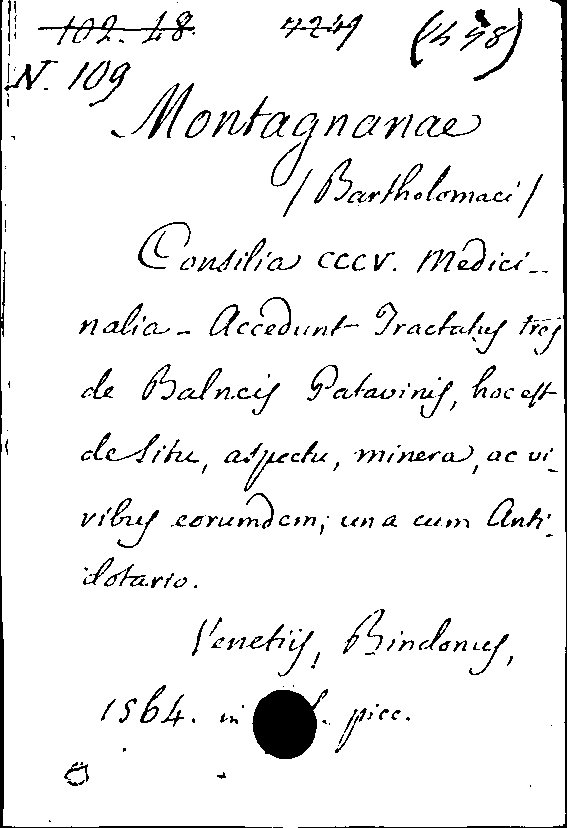 102. 48. 4249 (458)
N. 109
Montagnanae
/Bartholomaei/
Consilia CCCV. Medici-
nalia - Accedunt Tractatus tres
de Balneis Patavinis, hoc est
de situ, aspectu, minera, ac vi-
ribus eorumdem; una cum Anti-
dotario.
Venetiis, Bindonus,
1564. in picc.